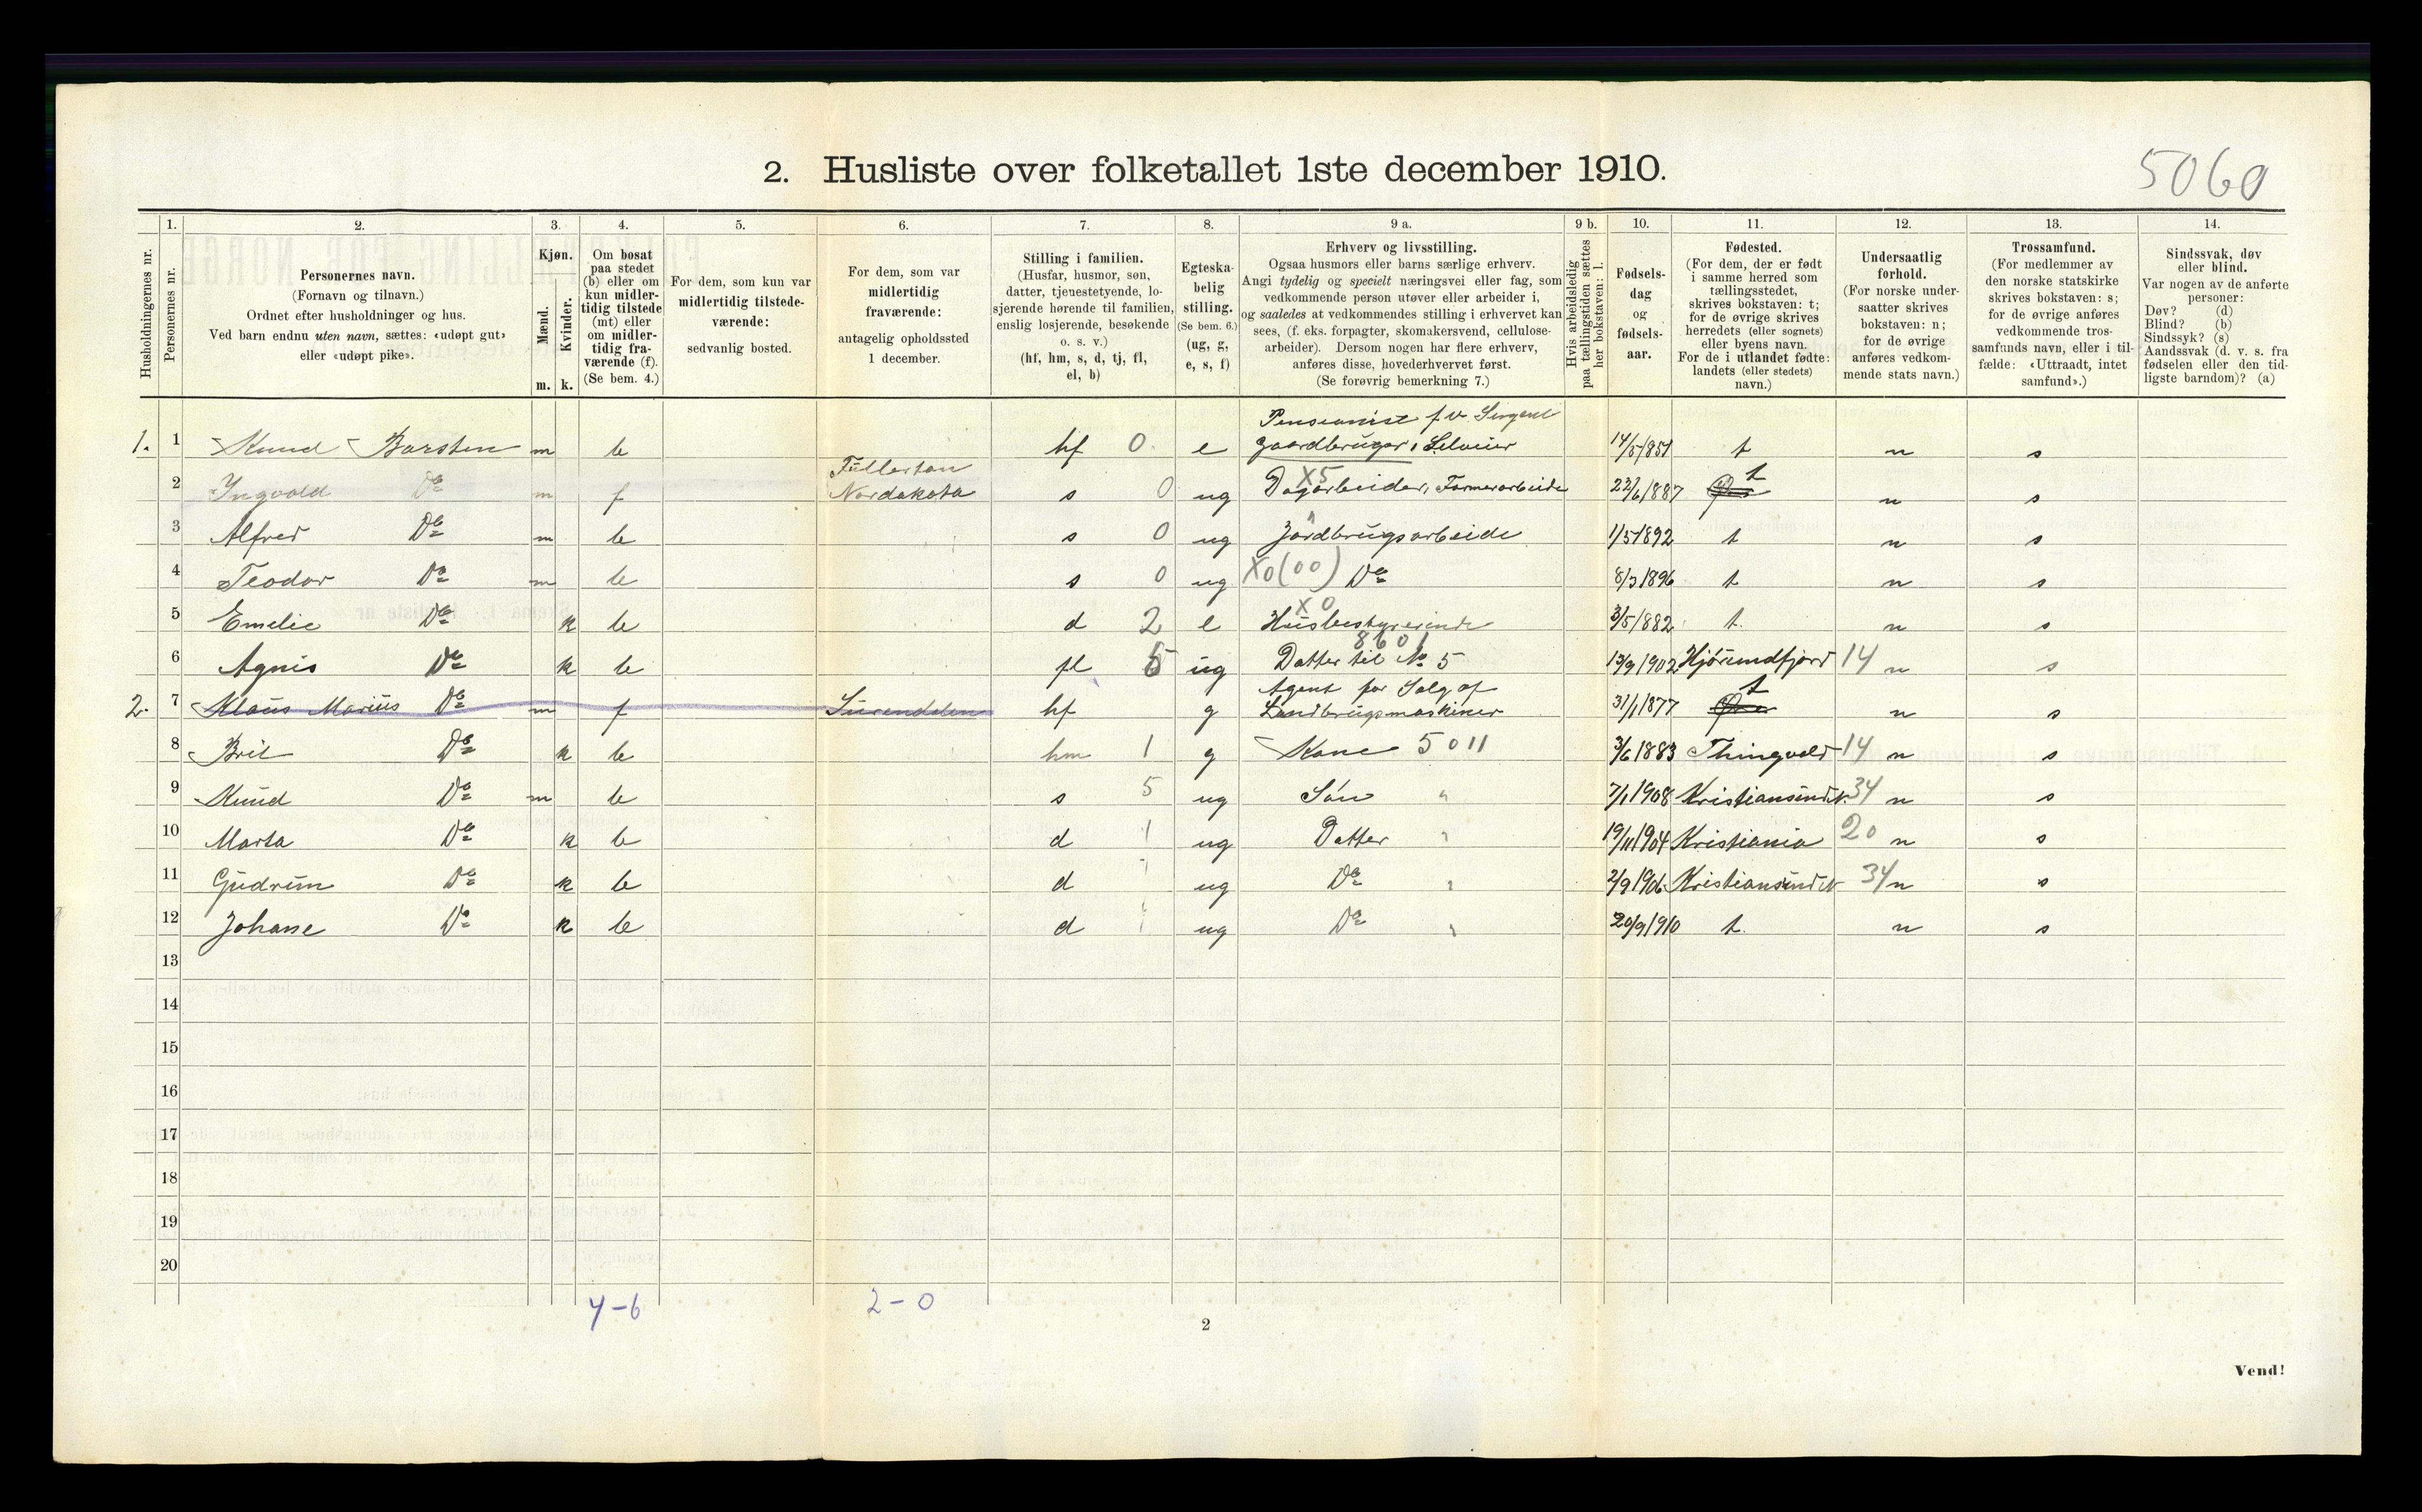 5060
2. Husliste over folketallet 1ste december 1910.
Husholdningernes nr.
1.
Personernes nr.
2.
Personernes navn.
(Fornavn og tilnavn.)
Ordnet efter husholdninger og hus.
Ved barn endnu uten navn, sættes: «udøpt gut»
eller «udøpt pike».
3.
Kjøn.
Mænd.
Kvinder.
m. k.
4.
Om bosat
paa stedet
(b) eller om
kun midler-
tidig tilstede
(mt) eller
om midler-
tidig fra-
værende (f).
(Se bem. 4.)
5.
For dem, som kun var
midlertidig tilstede-
værende:
sedvanlig bosted.
6.
For dem, som var
midlertidig
fraværende:
antagelig opholdssted
1 december.
7.
Stilling i familien.
(Husfar, husmor, søn,
datter, tjenestetyende, lo-
sjerende hørende til familien,
enslig losjerende, besøkende
o. s. v.)
(hf, hm, s, d, tj, fl,
el, b)
8.
Egteska-
belig
stilling.
(Se bem. 6.)
(ug, g,
e, s, f)
9 a.
Erhverv og livsstilling.
Ogsaa husmors eller barns særlige erhverv.
Angi tydelig og specielt næringsvei eller fag, som
vedkommende person utøver eller arbeider i,
og saaledes at vedkommendes stilling i erhvervet kan
sees, (f. eks. forpagter, skomakersvend, cellulose-
arbeider). Dersom nogen har flere erhverv,
anføres disse, hovederhvervet først.
(Se forøvrig bemerkning 7.)
9 b.
Hvis arbeidsledig
paa tællingstiden sættes
her bokstaven: l.
10.
Fødsels-
dag
og
fødsels-
aar.
11.
Fødested.
(For dem, der er født
i samme herred som
tællingsstedet,
skrives bokstaven: t;
for de øvrige skrives
herredets (eller sognets)
eller byens navn.
For de i utlandet fødte:
landets (eller stedets)
navn.)
12.
Undersaatlig
forhold.
(For norske under-
saatter skrives
bokstaven: n;
for de øvrige
anføres vedkom-
mende stats navn.)
13.
Trossamfund.
(For medlemmer av
den norske statskirke
skrives bokstaven: s;
for de øvrige anføres
vedkommende tros-
samfunds navn, eller i til-
fælde: «Uttraadt, intet
samfund».)
14.
Sindssvak, døv
eller blind.
Var nogen av de anførte
personer:
Døv? (d)
Blind? (b)
Sindssyk? (s)
Aandssvak (d. v. s. fra
fødselen eller den tid-
ligste barndom)? (a)
Pensionist f.v. Sergent
1. 1 Knud Barsten m b hf 0. e Gaardbruger, Selveier 14/5 1851 t n s
Fullerton
2 Ingvald Do m f Nordakota s 0 ug Dagarbeider, Farmerarbeide X5 22/6 1887 t n s
3 Alfred Do m b s 0 ug Jordbrugsarbeide 1/5 1892 t n s
4 Teodor Do m b s 0 ug X0(00) Do 8/3 1896 t n s
5 Emelie Do k b d 2 e Husbestyrerinde X0 3/5 1882 t. n s
8601
6 Agnis Do k b fl 5 ug Datter til No 5 13/9 1902 Hjörundfjord 14 n s
Agent for Salg af
2. 7 Klaus Marius Do m f Surendalen hf g Landbrugsmaskiner 31/1 1877 t n s
8 Brit Do k b hm 1 g Kone 5011 3/6 1883 Thingvold 14 n s
9 Knud Do m b s 5 ug Sön " 7/1 1908 Kristiansund N. 34 n s
10 Marta Do k b d 1 ug Datter " 19/11 1904 Kristiania 20 n s
11 Gudrun Do k b d ug Do " 2/9 1906 Kristiansund N 34 n s
12 Johane Do k b d ug Do " 20/9 1910 t. n s
13
14
15
16
17
18
19
20
4-6
2-0
2
Vend!